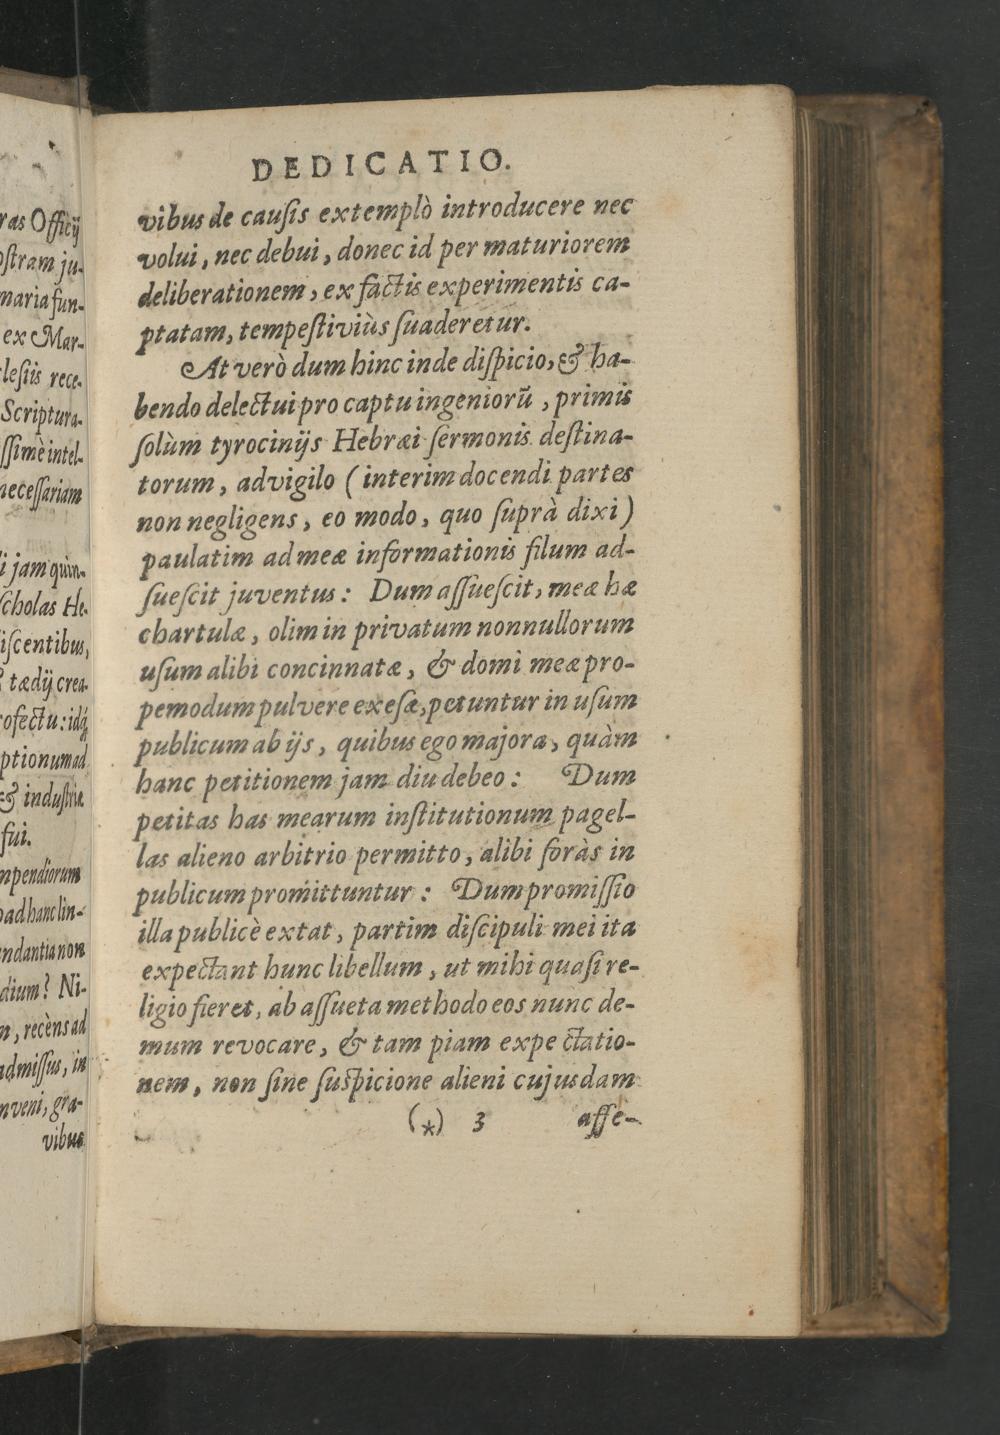 DEDICATIO.
vibus de cauſis extemplò introducere nec
volui, nec debui, donec id per maturiorem
deliberationem, ex factis experimentis ca-
ptatam, tempeſtiviùs ſuaderetur.
At verò dum hinc inde diſpicio, & ha-
bendo delectui pro captu ingeniorū, primis
ſolùm tyrocinijs Hebræi ſermonis deſtina-
torum, advigilo (interim docendi partes
non negligens, eo modo, quo ſuprà dixi)
paulatim ad meæ informationis filum ad-
ſueſcit juventus: Dum aſſueſcit, meæ hæ
chartulæ, olim in privatum nonnullorum
uſum alibi concinnatæ, & domi meæ pro-
pemodum pulvere exeſæ, petuntur in uſum
publicum ab ijs, quibus ego majora, quàm
hanc petitionem jam diu debeo: Dum
petitas has mearum inſtitutionum pagel-
las alieno arbitrio permitto, alibi foràs in
publicum promittuntur: Dum promiſſio
illa publicè extat, partim diſcipuli mei ita
expectant hunc libellum, ut mihi quaſi re-
ligio fieret, ab aſſueta methodo eos nunc de-
mum revocare, & tam piam expectatio-
nem, non ſine ſuſpicione alieni cujusdam
(*) 3 affe-
ras Officij
oſtram ju-
maria fun-
ex Mar-
leſiis rece-
Scriptura-
ſſimè intel-
neceſſariam
i jam quin-
ſcholas He-
iſcentibus,
tædij crea-
ofectu: idq́
ptionum ad
& induſtriæ
fui.
mpendiorum
ad hanc lin-
ndantia non
dium? Ni-
n, recèns ad
admiſſus, in
nveni, gra-
vibus